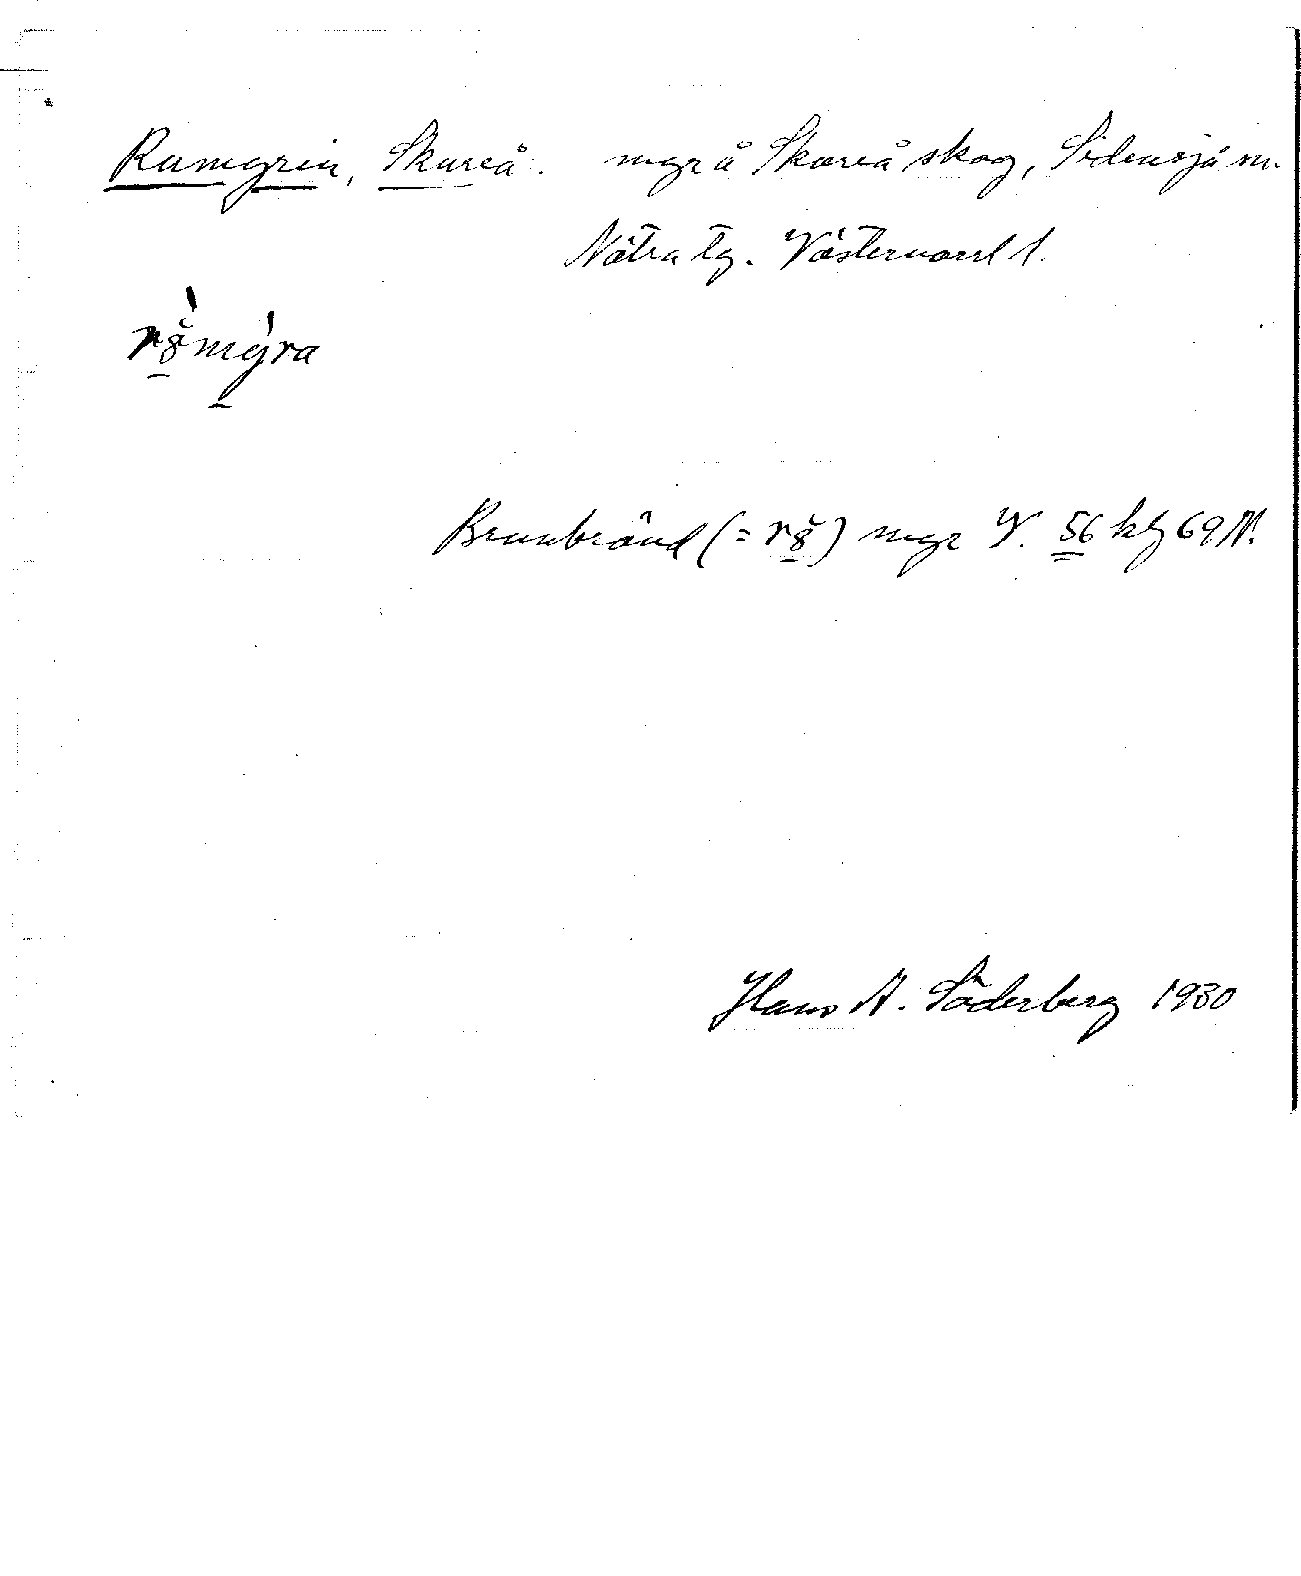 Ramyren, Skureå. myr å Skureå skog, Sidensjö sn.
Nätra tg. Västernorrl l.
myra
Brunbränd (= ) myr V. 56 kf 69 N.
Hans A. Söderberg 1930